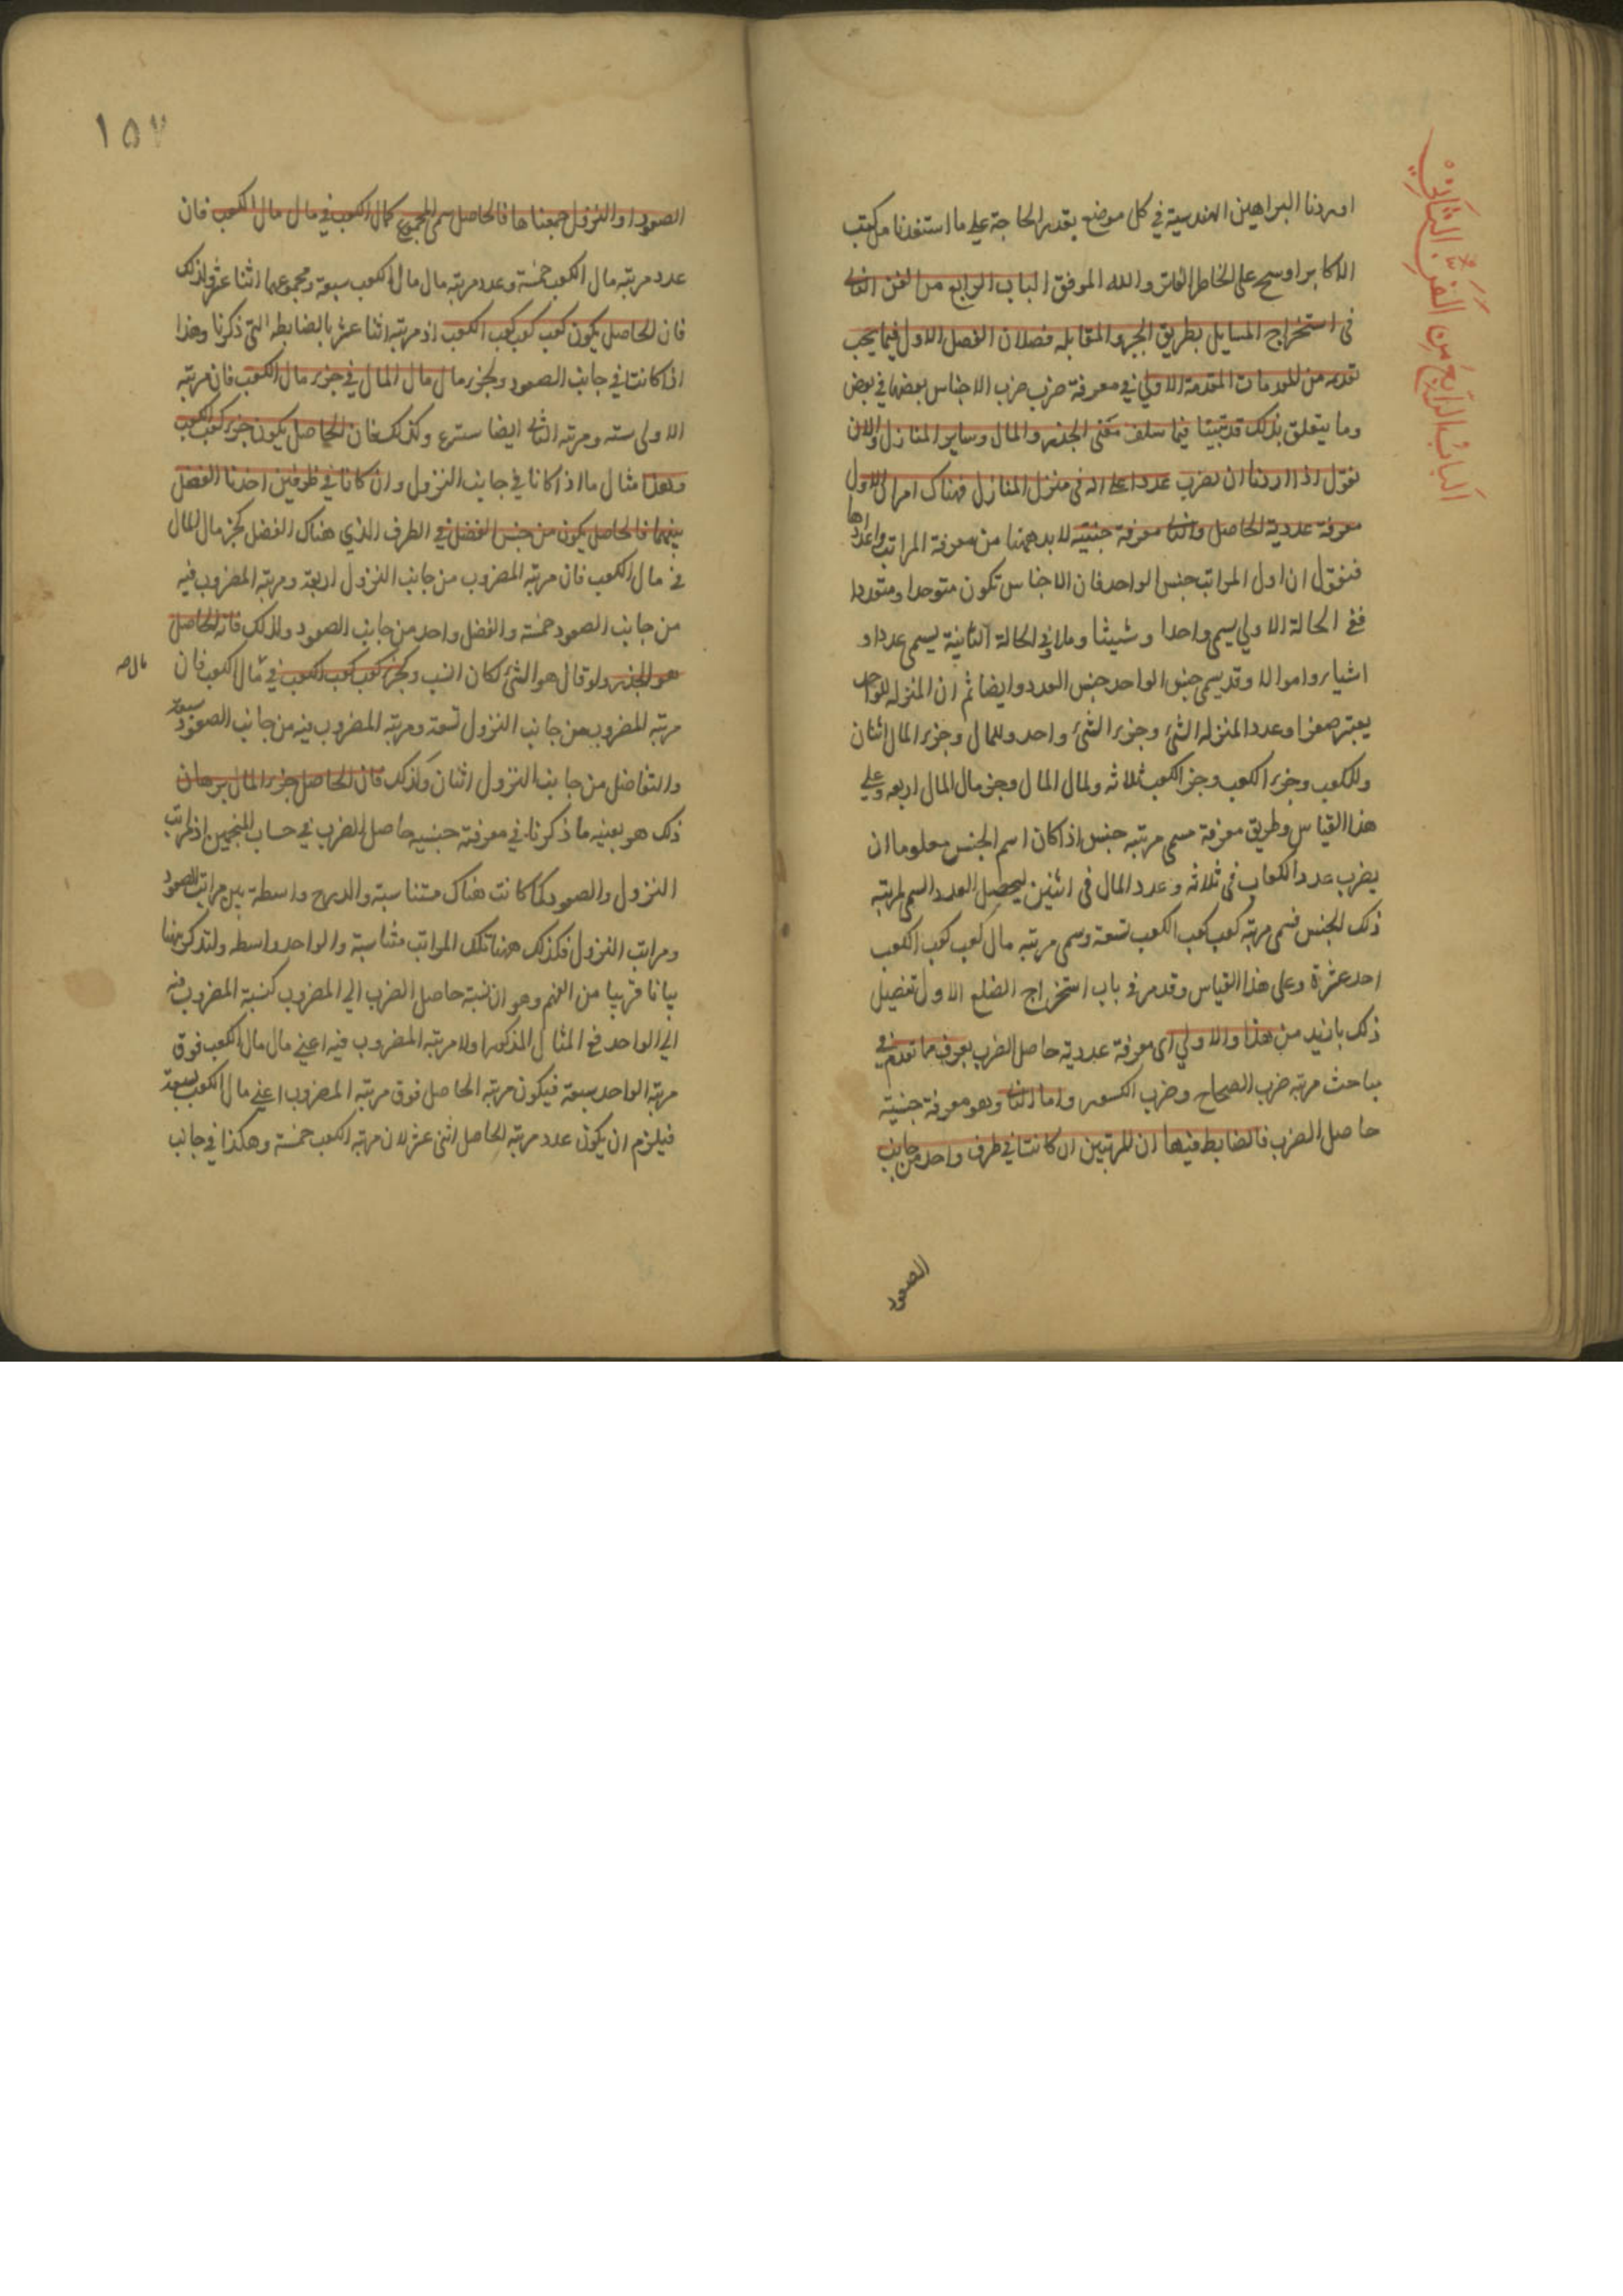 الباب الرابع من الفن الثاني
اوردنا البراهين الهندسية في كل موضع بقدر الحاجة على ما استفدنا من كتب
الاكابر او سنح على الخاطر الفاتر والله الموفق الباب الرابع من الفن الثاني
في استخراج المسايل بطريق الجبر والمقابلة فصلان الفصل الاول فيما يجب
تقديمه من المقدمات المقدمة الاولي في معرفة ضرب ضرب الاجناس بعضها في بعض
وما يتعلق بذلك قد بينا فيما سلف معنى الجذر والمال وساير المنازل والان
نقول اذا اردنا ان نضرب عددا في منزل المنازل فهناك امران الاول
معرفة عددية الحاصل والثاني معرفة جنسيته لا بد ههنا من معرفة المراتب واعدادها
فنقول ان اول المراتب جنس الواحد فان الاجناس تكون متوحدا ومتعددا
ففي الحالة الاولي يسمي واحدا وشيئا ومالا وفي الحالة الثانية يسمى عددا و
اشياء واموالا وقد يسمي جنس الواحد جنس العدد وايضا ثم ان المنزلة للواحد
يعتبر صفرا وعدد المنزلة الشئ وجزء الشئ واحد وللمال وجزء المال اثنان
وللكعب وجزء الكعب وجز الكعب ثلاثه ولمال المال وجز مال المال اربعه وعلي
هذا القياس وطريق معرفة مسمى مرتبه جنس اذا كان اسم الجنس معلوما ان
يضرب عدد الكعاب في ثلاثه وعدد المال في اثنين ليحصل العدد السمي لمرتبه
ذلك الجنس فسمى مرتبه كعب كعب الكعب تسعة وسمى مرتبه مال كعب كعب الكعب
احد عشرة وعلى هذا القياس وقد مر في باب استخراج الضلع الاول تفصيل
ذلك بازيد من هذا والاولي اى معرفة عددية حاصل الضرب يعرف مما تقدم في
مباحث مرتبه ضرب الصحاح وضرب الكسور واما الثاني وهو معرفة جنسيته
حاصل الضرب فالضابط فيها ان المرتبتين ان كانتا في طرف واحد من جانب
الصعود
١٥٧
الصعود او النزول جمعناها فالحاصل سمى المجموع كمال الكعب في مال مال الكعب فان
عدد مرتبة مال الكعب خمسة وعدد مرتبه مال مال الكعب سبعة ومجموعهما اثنا عشر ولذلك
فان الحاصل يكون كعب كعب كعب الكعب اذ مرتبه اثنا عشر بالضابطه التي ذكرنا وهذا
اذا كانتا في جانب الصعود وكجزء مال مال المال في جزء مال الكعب فان مرتبه
الاولى سته ومرتبه الثاني ايضا ستدع وكذلك فان الحاصل يكون جزء كعب الكعب
وهذا مثال ما اذا كانا في جانب النزول وان كانا في طرفين اخذنا الفضل
بينهما فالحاصل يكون من جنس الفضل في الطرف الذي هناك الفضل كجز مال المال
في مال الكعب فان مرتبه المضروب من جانب النزول اربعة ومرتبه المضروب فيه
من جانب الصعود خمسة والفضل واحد من جانب الصعود ولذلك فان الحاصل
هو الجذر ولو قال هو الشئ لكان انسب وكجزء كعب كعب الكعب في مال الكعب فان
مال صح
مرتبه المضروب من جانب النزول تسعة ومرتبه المضروب فيه من جانب الصعود سبعة
والتفاضل من جانب النزول اثنان وكذلك فان الحاصل جزء المال برهان
ذلك هو بعينه ما ذكرنا في معرفة جنسيه حاصل الضرب في حساب المنجمين اذ مراتب
النزول والصعود كما كانت هناك متناسبة والدرج واسطة بين مراتب الصعود
ومراتب النزول فكذلك ههنا تلك المراتب متناسبة والواحد واسطه ولنذكر ههنا
بيانا قريبا من الفهم وهو ان نسبة حاصل الضرب الي المضروب كنسبة المضروب فيه
الي الواحد ففي المثال المذكور اولا مرتبه المضروب فيه اعني مال مال الكعب فوق
مرتبة الواحد سبعة فيكون مرتبه الحاصل فوق مرتبه المضروب اعني مال الكعب بسبعة
فيلزم ان يكون عدد مرتبه الحاصل اثنى عشر لان مرتبه الكعب خمسة وهكذا في جانب